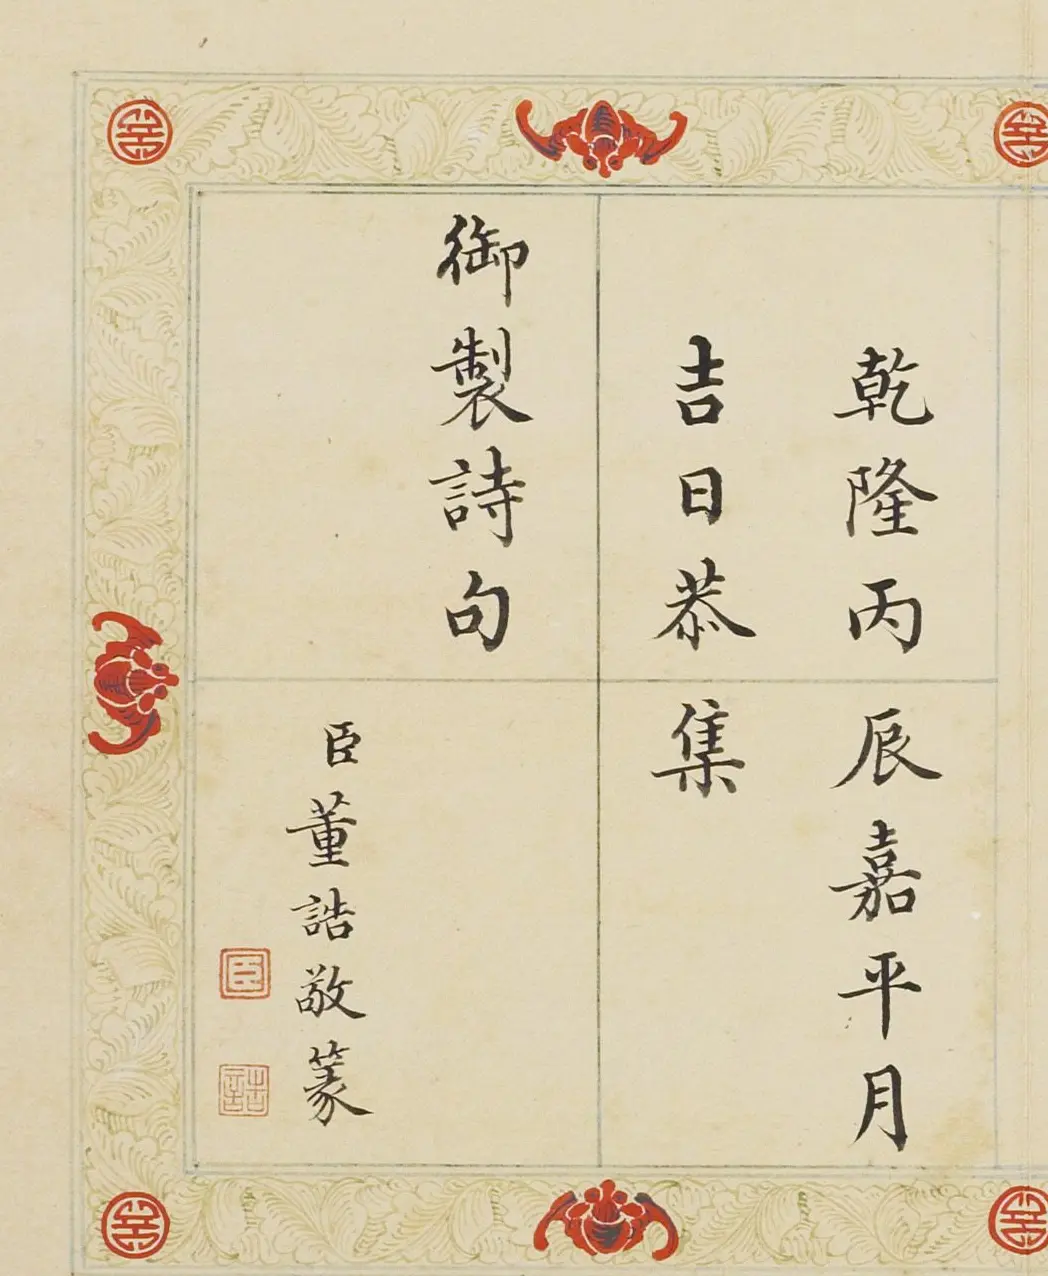 乾隆丙辰嘉平月
吉日恭集
御製詩句
臣董誥敬篆
臣
誥